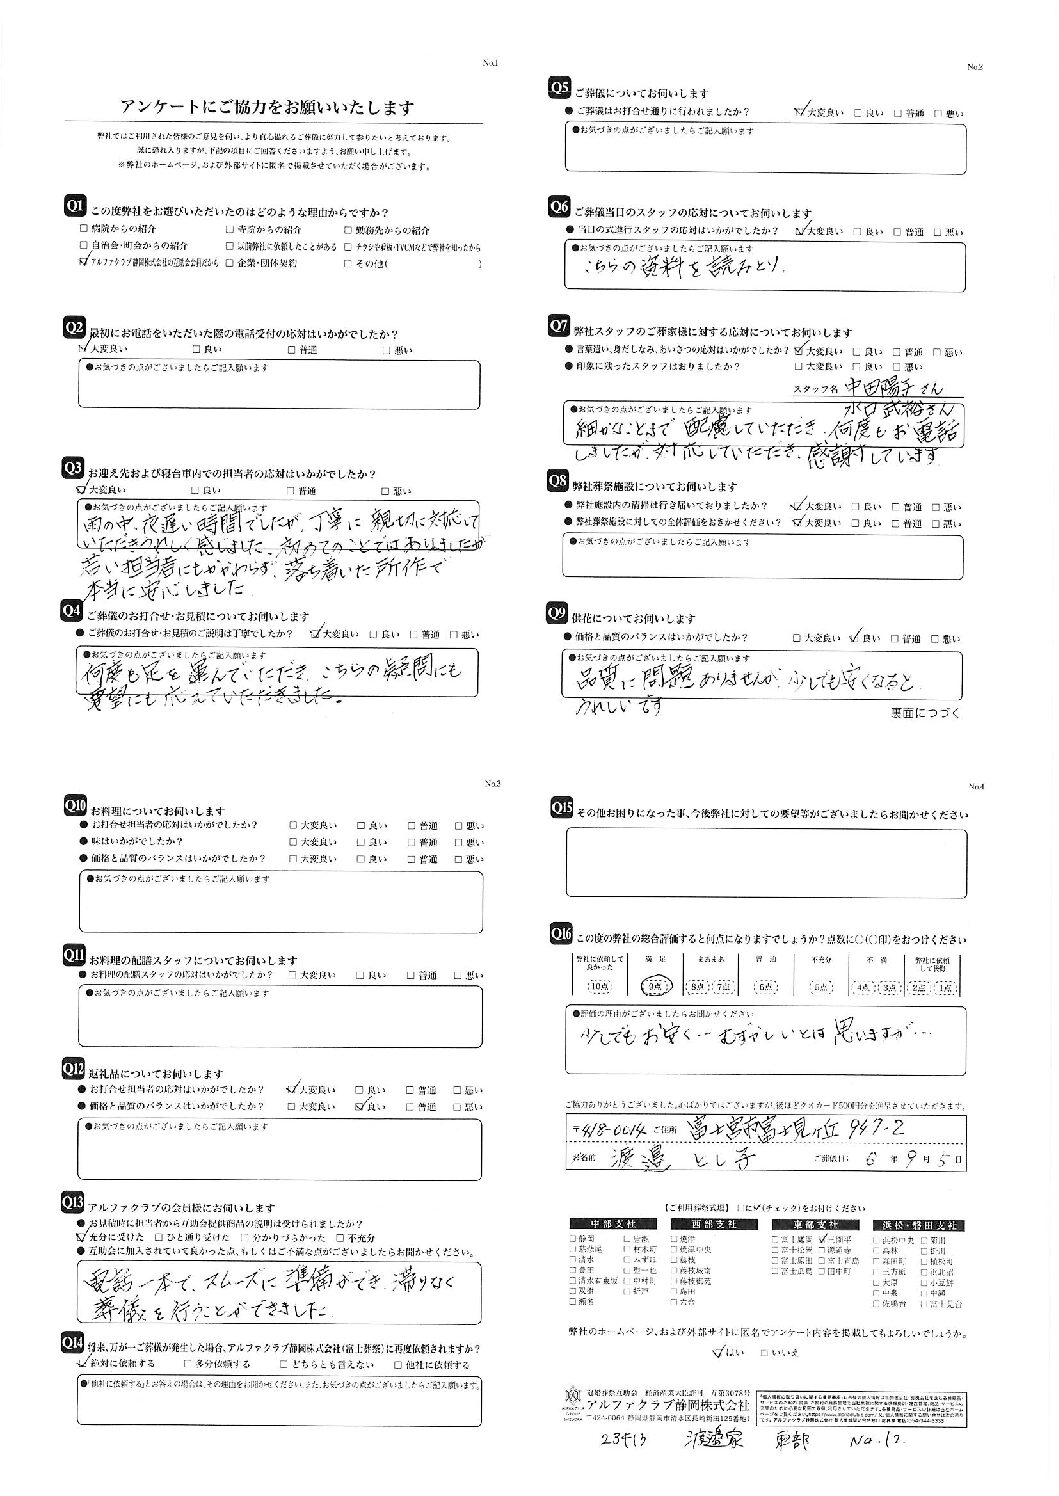 No.1
アンケートにご協力をお願いいたします
弊社ではご利用された皆様のご意見を伺い、より真心溢れるご葬儀に努力して参りたいと考えております。
誠に恐れ入りますが、下記の項目にご回答くださいますよう、お願い申し上げます。
※弊社のホームページ、および外部サイトに匿名で掲載させていただく場合がございます。
Q1 この度弊社をお選びいただいたのはどのような理由からですか?
□病院からの紹介 □寺院からの紹介 □勤務先からの紹介
□自治会・町会からの紹介 □以前弊社に依頼したことがある □チラシや看板・TVCMなどで弊社を知ったから
☑アルファクラブ静岡株式会社の互助会会員だから □企業・団体契約 □その他( )
Q2 最初にお電話をいただいた際の電話受付の応対はいかがでしたか?
☑大変良い □良い □普通 □悪い
●お気づきの点がございましたらご記入願います
Q3 お迎え先および寝台車内での担当者の応対はいかがでしたか?
☑大変良い □良い □普通 □悪い
●お気づきの点がございましたらご記入願います
雨の中、夜遅い時間でしたが、丁寧に親切に対応して
いただきうれしく感じました、初めてのことではありましたが
若い担当者にもかかわらず、落ち着いた所作で
本当に安心しました
Q4 ご葬儀のお打合せ・お見積についてお伺いします
●ご葬儀のお打合せ・お見積のご説明は丁寧でしたか? ☑大変良い □良い □普通 □悪い
●お気づきの点がございましたらご記入願います
何度も足を運んでいただき、こちらの疑問にも
要望にも応えていただきました。
No.2
Q5 ご葬儀についてお伺いします
●ご葬儀はお打合せ通りに行われましたか? ☑大変良い □良い □普通 □悪い
●お気づきの点がございましたらご記入願います
Q6 ご葬儀当日のスタッフの応対についてお伺いします
●当日の式進行スタッフの応対はいかがでしたか? ☑大変良い □良い □普通 □悪い
●お気づきの点がございましたらご記入願います
こちらの資料を読みとり、
Q7 弊社スタッフのご葬家様に対する応対についてお伺いします
●言葉遣い、身だしなみ、あいさつの応対はいかがでしたか? ☑大変良い □良い □普通 □悪い
●印象に残ったスタッフはおりましたか? □大変良い □良い □悪い
スタッフ名 中田陽子さん
水口武裕さん
●お気づきの点がございましたらご記入願います
細かなことまで配慮していただき、何度もお電話
しましたが、対応していただき、感謝しています
Q8 弊社葬祭施設についてお伺いします
●弊社施設内の清掃は行き届いておりましたか? ☑大変良い □良い □普通 □悪い
●弊社葬祭施設に対しての全体評価をおきかせください? ☑大変良い □良い □普通 □悪い
●お気づきの点がございましたらご記入願います
Q9 供花についてお伺いします
●価格と品質のバランスはいかがでしたか? □大変良い ☑良い □普通 □悪い
●お気づきの点がございましたらご記入願います
品質に問題ありませんが、少しでも安くなると
うれしいです
裏面につづく
No.3
Q10 お料理についてお伺いします
●お打合せ担当者の応対はいかがでしたか? □大変良い □良い □普通 □悪い
●味はいかがでしたか? □大変良い □良い □普通 □悪い
●価格と品質のバランスはいかがでしたか? □大変良い □良い □普通 □悪い
●お気づきの点がございましたらご記入願います
Q11 お料理の配膳スタッフについてお伺いします
●お料理の配膳スタッフの応対はいかがでしたか? □大変良い □良い □普通 □悪い
●お気づきの点がございましたらご記入願います
Q12 返礼品についてお伺いします
●お打合せ担当者の応対はいかがでしたか? ☑大変良い □良い □普通 □悪い
●価格と品質のバランスはいかがでしたか? □大変良い ☑良い □普通 □悪い
●お気づきの点がございましたらご記入願います
Q13 アルファクラブの会員様にお伺いします
●お見積時に担当者から互助会提供商品の説明は受けられましたか?
☑充分に受けた □ひと通り受けた □分かりづらかった □不充分
●互助会に加入されていて良かった点、もしくはご不満な点がございましたらお聞かせください。
電話一本で、スムーズに準備ができ、滞りなく
葬儀を行うことができました
Q14 将来、万が一ご葬儀が発生した場合、アルファクラブ静岡株式会社(富士葬祭)に再度依頼されますか?
☑絶対に依頼する □多分依頼する □どちらとも言えない □他社に依頼する
●「他社に依頼する」とお答えの場合は、その理由をお聞かせください。また、お気づきの点がございましたらご記入願います。
No.4
Q15 その他お困りになった事、今後弊社に対しての要望等がございましたらお聞かせください
Q16 この度の弊社の総合評価すると何点になりますでしょうか?点数に〇(〇印)をおつけください
弊社に依頼して良かった 満足 まあまあ 普通 不充分 不満 弊社に依頼して後悔
10点 9点 8点 7点 6点 5点 4点 3点 2点 1点
●評価の理由がございましたらお聞かせください
少しでもお安く… むずかしいとは思いますが…
ご協力ありがとうございました。心ばかりではございますが、後ほどクオカード500円分を進呈させていただきます。
〒418-0014 ご住所 富士宮市富士見ヶ丘 947-2
お名前 渡邉 とし子 ご葬儀日: 6年9月5日
【ご利用葬祭式場】□に☑(チェック)をお付けください
中部支社 西部支社 東部支社 浜松・磐田支社
弊社のホームページ、および外部サイトに匿名でアンケート内容を掲載してもよろしいでしょうか。
☑はい □いいえ
冠婚葬祭互助会 経済産業大臣許可 互第3078号
アルファクラブ静岡株式会社
23413 渡邉家 東部 No.12